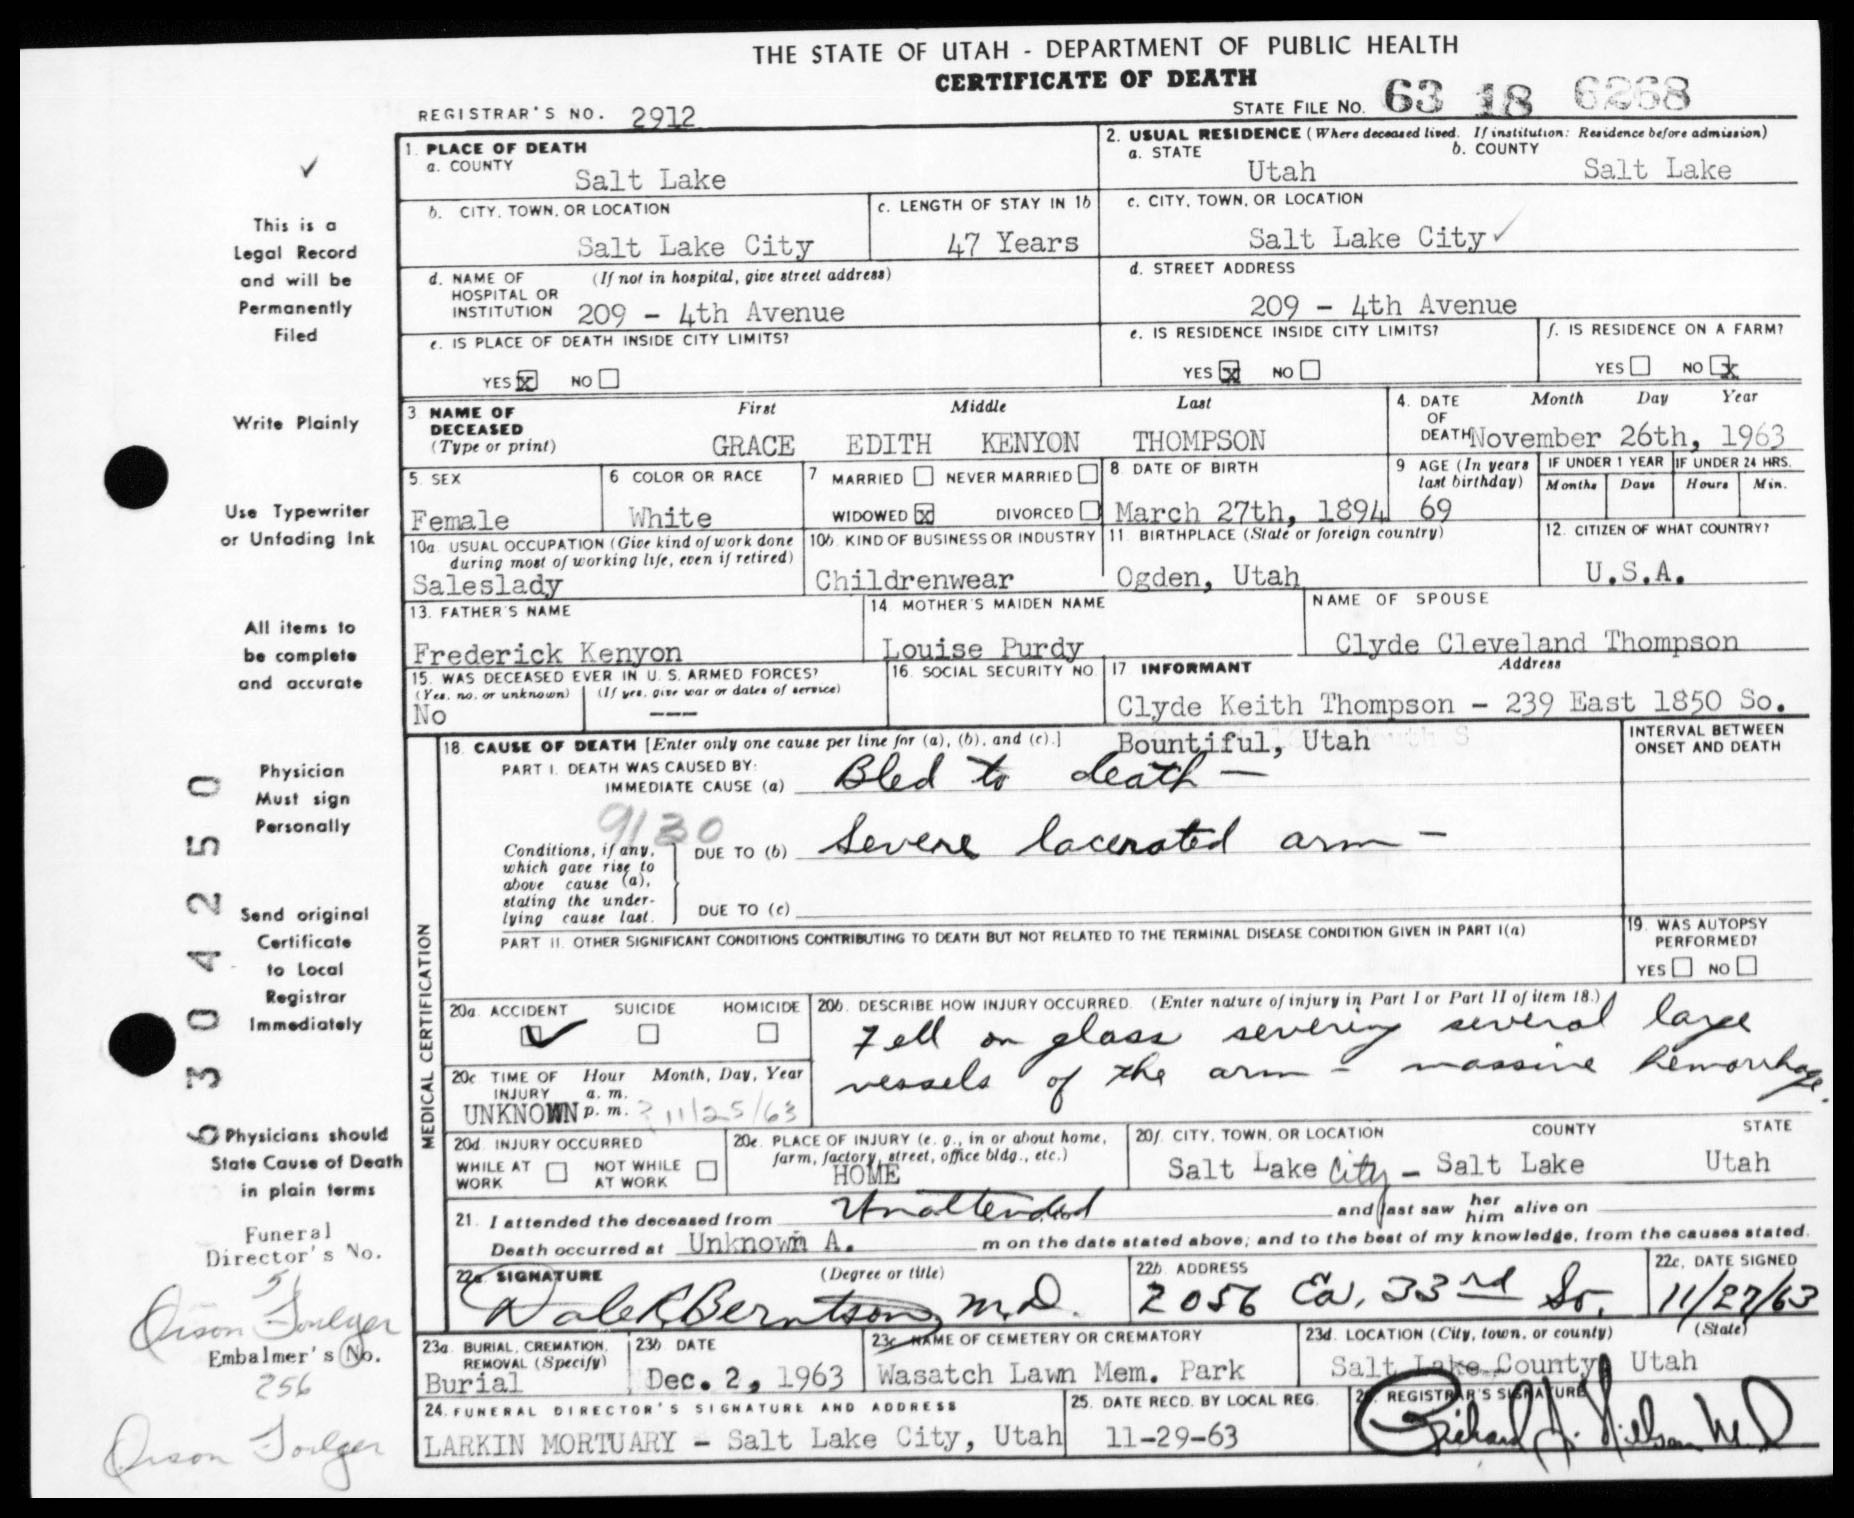 THE STATE OF UTAH - DEPARTMENT OF PUBLIC HEALTH
CERTIFICATE OF DEATH
REGISTRAR'S NO. 2912
STATE FILE NO. 63 18 6268
This is a
Legal Record
and will be
Permanently
Filed
Write Plainly
Use Typewriter
or Unfading Ink
All items to
be complete
and accurate
Physician
Must sign
Personally
Send original
Certificate
to Local
Registrar
Immediately
Physicians should
State Cause of Death
in plain terms
Funeral
Director's No.
51
Orison Soulger
Embalmer's No.
256
Orson Soulger
6304250
1. PLACE OF DEATH
a. COUNTY
Salt Lake
2. USUAL RESIDENCE (Where deceased lived. If institution: Residence before admission)
a. STATE Utah
b. COUNTY Salt Lake
b. CITY, TOWN, OR LOCATION
Salt Lake City
c. LENGTH OF STAY IN 1b
47 Years
c. CITY, TOWN, OR LOCATION
Salt Lake City ✓
d. NAME OF HOSPITAL OR INSTITUTION (If not in hospital, give street address)
209 - 4th Avenue
d. STREET ADDRESS
209 - 4th Avenue
e. IS PLACE OF DEATH INSIDE CITY LIMITS?
YES X NO
e. IS RESIDENCE INSIDE CITY LIMITS?
YES X NO
f. IS RESIDENCE ON A FARM?
YES NO X
3 NAME OF DECEASED (Type or print)
First Middle Last
GRACE EDITH KENYON THOMPSON
4. DATE OF DEATH Month Day Year
November 26th, 1963
5. SEX
Female
6 COLOR OR RACE
White
7 MARRIED NEVER MARRIED
WIDOWED X DIVORCED
8 DATE OF BIRTH
March 27th, 1894
9 AGE (In years last birthday)
69
IF UNDER 1 YEAR IF UNDER 24 HRS.
Months Days Hours Min.
10a. USUAL OCCUPATION (Give kind of work done during most of working life, even if retired)
Saleslady
10b. KIND OF BUSINESS OR INDUSTRY
Childrenwear
11. BIRTHPLACE (State or foreign country)
Ogden, Utah
12. CITIZEN OF WHAT COUNTRY?
U.S.A.
13. FATHER'S NAME
Frederick Kenyon
14 MOTHER'S MAIDEN NAME
Louise Purdy
NAME OF SPOUSE
Clyde Cleveland Thompson
15. WAS DECEASED EVER IN U. S. ARMED FORCES?
(Yes, no, or unknown) (If yes, give war or dates of service)
No ---
16. SOCIAL SECURITY NO.
17 INFORMANT Address
Clyde Keith Thompson - 239 East 1850 So.
Bountiful, Utah
18. CAUSE OF DEATH [Enter only one cause per line for (a), (b), and (c).]
INTERVAL BETWEEN ONSET AND DEATH
PART I. DEATH WAS CAUSED BY:
IMMEDIATE CAUSE (a) Bled to death -
9130
Conditions, if any, which gave rise to above cause (a), stating the underlying cause last.
DUE TO (b) Severe lacerated arm -
DUE TO (c)
PART II. OTHER SIGNIFICANT CONDITIONS CONTRIBUTING TO DEATH BUT NOT RELATED TO THE TERMINAL DISEASE CONDITION GIVEN IN PART I(a)
19. WAS AUTOPSY PERFORMED?
YES NO
MEDICAL CERTIFICATION
20a. ACCIDENT SUICIDE HOMICIDE
✓
20b. DESCRIBE HOW INJURY OCCURRED. (Enter nature of injury in Part I or Part II of item 18.)
Fell on glass severing several large
vessels of the arm - massive hemorrhage.
20c. TIME OF INJURY Hour a. m. p. m. Month, Day, Year
UNKNOWN ? 11/25/63
20d. INJURY OCCURRED
WHILE AT WORK NOT WHILE AT WORK
20e. PLACE OF INJURY (e. g., in or about home, farm, factory, street, office bldg., etc.)
HOME
20f. CITY, TOWN, OR LOCATION COUNTY STATE
Salt Lake City - Salt Lake Utah
21. I attended the deceased from Unattended and last saw her him alive on
Death occurred at Unknown A. m on the date stated above; and to the best of my knowledge, from the causes stated.
22a. SIGNATURE (Degree or title)
Dale R Berntson, M.D.
22b. ADDRESS
2056 Ea. 33rd So.
22c. DATE SIGNED
11/27/63
23a. BURIAL, CREMATION, REMOVAL (Specify)
Burial
23b DATE
Dec. 2, 1963
23c. NAME OF CEMETERY OR CREMATORY
Wasatch Lawn Mem. Park
23d. LOCATION (City, town, or county) (State)
Salt Lake County Utah
24. FUNERAL DIRECTOR'S SIGNATURE AND ADDRESS
LARKIN MORTUARY - Salt Lake City, Utah
25. DATE RECD. BY LOCAL REG.
11-29-63
26. REGISTRAR'S SIGNATURE
Richard J. Nielson M.D